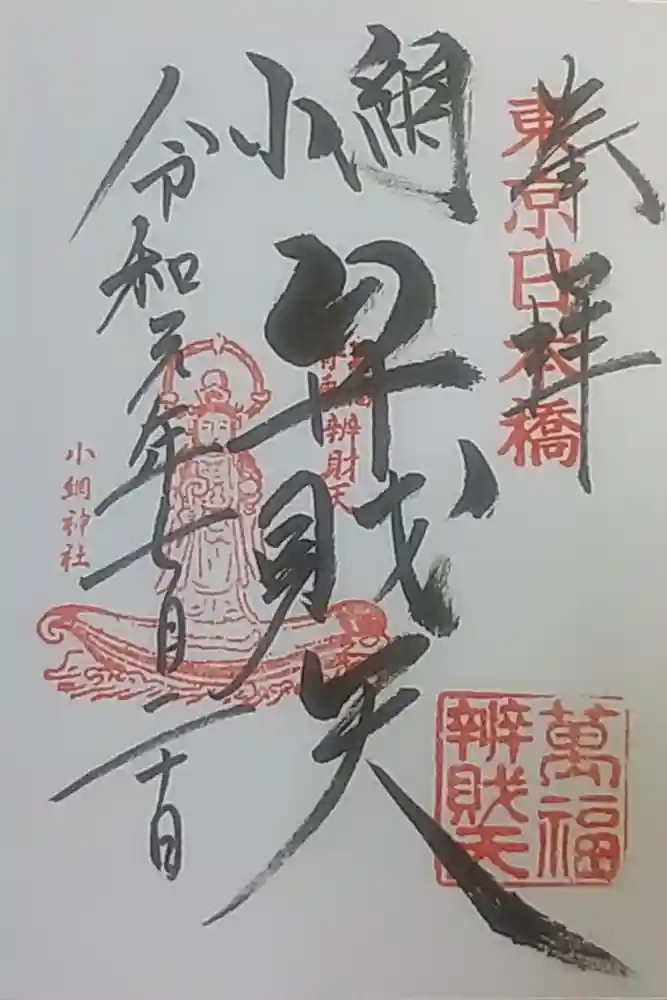 奉拝
東京日本橋
小網
弁財天
令和元年七月二十日
辨財天
小網神社
萬福
辨財天